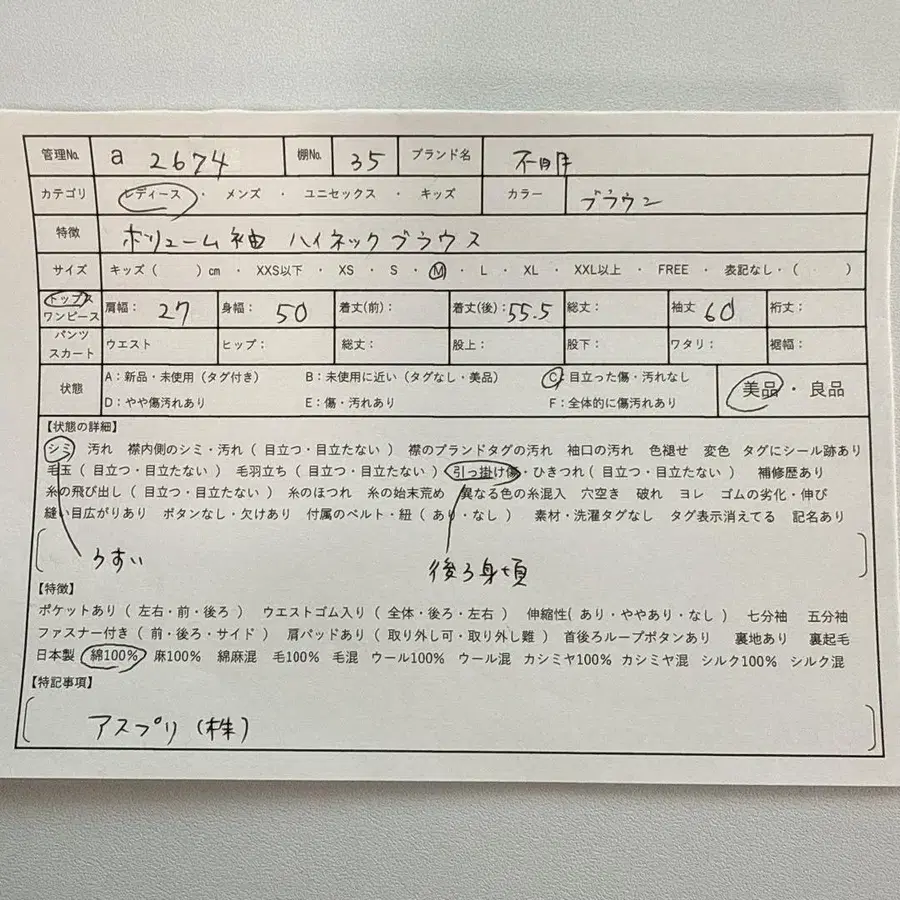 管理No. a 2674 棚No. 35 ブランド名 不明
カテゴリ レディース ・ メンズ ・ ユニセックス ・ キッズ カラー ブラウン
特徴 ボリューム袖 ハイネックブラウス
サイズ キッズ ( ) cm ・ XXS以下 ・ XS ・ S ・ M ・ L ・ XL ・ XXL以上 ・ FREE ・ 表記なし ・ ( )
トップス ワンピース 肩幅: 27 身幅: 50 着丈(前): 着丈(後): 55.5 総丈: 袖丈 60 裄丈:
パンツ スカート ウエスト ヒップ: 総丈: 股上: 股下: ワタリ: 裾幅:
状態 A:新品・未使用(タグ付き) B:未使用に近い(タグなし・美品) C:目立った傷・汚れなし 美品 ・ 良品
D:やや傷汚れあり E:傷・汚れあり F:全体的に傷汚れあり
【状態の詳細】
シミ 汚れ 襟内側のシミ・汚れ ( 目立つ・目立たない ) 襟のブランドタグの汚れ 袖口の汚れ 色褪せ 変色 タグにシール跡あり
毛玉 ( 目立つ・目立たない ) 毛羽立ち ( 目立つ・目立たない ) 引っ掛け傷・ひきつれ ( 目立つ・目立たない ) 補修歴あり
糸の飛び出し ( 目立つ・目立たない ) 糸のほつれ 糸の始末荒め 異なる色の糸混入 穴空き 破れ ヨレ ゴムの劣化・伸び
縫い目広がりあり ボタンなし・欠けあり 付属のベルト・紐 ( あり・なし ) 素材・洗濯タグなし タグ表示消えてる 記名あり
うすい 後ろ身頃
【特徴】
ポケットあり ( 左右・前・後ろ ) ウエストゴム入り ( 全体・後ろ・左右 ) 伸縮性( あり・ややあり・なし ) 七分袖 五分袖
ファスナー付き ( 前・後ろ・サイド ) 肩パッドあり ( 取り外し可・取り外し難 ) 首後ろループボタンあり 裏地あり 裏起毛
日本製 綿100% 麻100% 綿麻混 毛100% 毛混 ウール100% ウール混 カシミヤ100% カシミヤ混 シルク100% シルク混
【特記事項】
アスプリ(株)